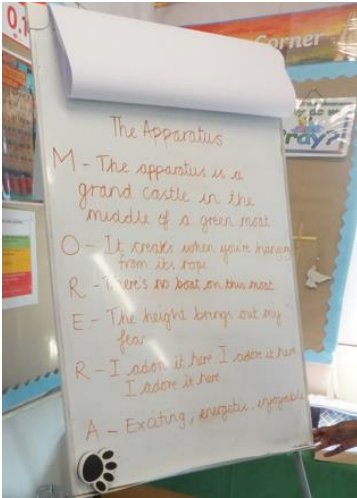 0.1
Corner
Pray?
The Apparatus
M - The apparatus is a
grand castle in the
middle of a green moat
O - It creaks when you're hanging
from its rope
R - There's no boat on this moat
E - The height brings out my
fear
R - I adore it here I adore it here
I adore it here
A - Exciting, energetic, enjoyable